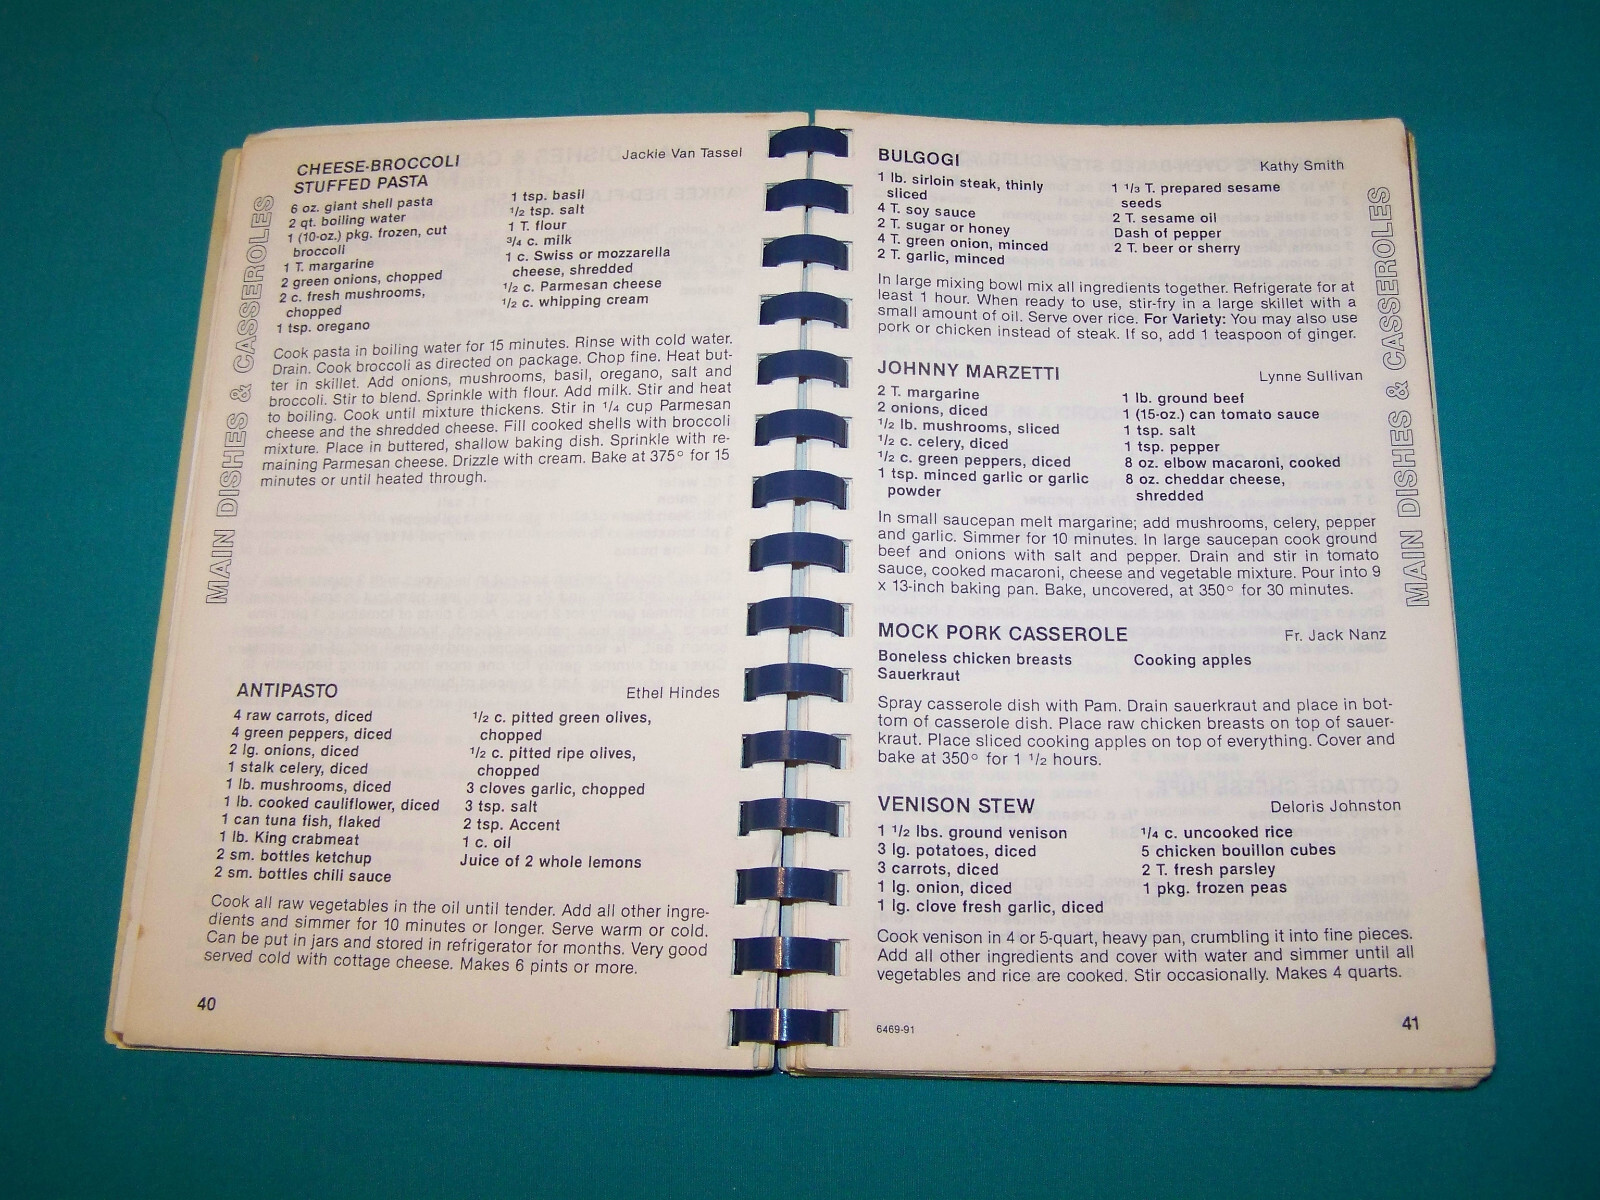 MAIN DISHES & CASSEROLES
CHEESE-BROCCOLI
STUFFED PASTA
Jackie Van Tassel
6 oz. giant shell pasta
2 qt. boiling water
1 (10-oz.) pkg. frozen, cut
broccoli
1 T. margarine
2 green onions, chopped
2 c. fresh mushrooms,
chopped
1 tsp. oregano
1 tsp. basil
1/2 tsp. salt
1 T. flour
3/4 c. milk
1 c. Swiss or mozzarella
cheese, shredded
1/2 c. Parmesan cheese
1/2 c. whipping cream
Cook pasta in boiling water for 15 minutes. Rinse with cold water.
Drain. Cook broccoli as directed on package. Chop fine. Heat but-
ter in skillet. Add onions, mushrooms, basil, oregano, salt and
broccoli. Stir to blend. Sprinkle with flour. Add milk. Stir and heat
to boiling. Cook until mixture thickens. Stir in 1/4 cup Parmesan
cheese and the shredded cheese. Fill cooked shells with broccoli
mixture. Place in buttered, shallow baking dish. Sprinkle with re-
maining Parmesan cheese. Drizzle with cream. Bake at 375° for 15
minutes or until heated through.
ANTIPASTO
Ethel Hindes
4 raw carrots, diced
4 green peppers, diced
2 lg. onions, diced
1 stalk celery, diced
1 lb. mushrooms, diced
1 lb. cooked cauliflower, diced
1 can tuna fish, flaked
1 lb. King crabmeat
2 sm. bottles ketchup
2 sm. bottles chili sauce
1/2 c. pitted green olives,
chopped
1/2 c. pitted ripe olives,
chopped
3 cloves garlic, chopped
3 tsp. salt
2 tsp. Accent
1 c. oil
Juice of 2 whole lemons
Cook all raw vegetables in the oil until tender. Add all other ingre-
dients and simmer for 10 minutes or longer. Serve warm or cold.
Can be put in jars and stored in refrigerator for months. Very good
served cold with cottage cheese. Makes 6 pints or more.
40
BULGOGI
Kathy Smith
1 lb. sirloin steak, thinly
sliced
4 T. soy sauce
2 T. sugar or honey
4 T. green onion, minced
2 T. garlic, minced
1 1/3 T. prepared sesame
seeds
2 T. sesame oil
Dash of pepper
2 T. beer or sherry
In large mixing bowl mix all ingredients together. Refrigerate for at
least 1 hour. When ready to use, stir-fry in a large skillet with a
small amount of oil. Serve over rice. For Variety: You may also use
pork or chicken instead of steak. If so, add 1 teaspoon of ginger.
JOHNNY MARZETTI
Lynne Sullivan
2 T. margarine
2 onions, diced
1/2 lb. mushrooms, sliced
1/2 c. celery, diced
1/2 c. green peppers, diced
1 tsp. minced garlic or garlic
powder
1 lb. ground beef
1 (15-oz.) can tomato sauce
1 tsp. salt
1 tsp. pepper
8 oz. elbow macaroni, cooked
8 oz. cheddar cheese,
shredded
In small saucepan melt margarine; add mushrooms, celery, pepper
and garlic. Simmer for 10 minutes. In large saucepan cook ground
beef and onions with salt and pepper. Drain and stir in tomato
sauce, cooked macaroni, cheese and vegetable mixture. Pour into 9
x 13-inch baking pan. Bake, uncovered, at 350° for 30 minutes.
MOCK PORK CASSEROLE
Fr. Jack Nanz
Boneless chicken breasts
Sauerkraut
Cooking apples
Spray casserole dish with Pam. Drain sauerkraut and place in bot-
tom of casserole dish. Place raw chicken breasts on top of sauer-
kraut. Place sliced cooking apples on top of everything. Cover and
bake at 350° for 1 1/2 hours.
VENISON STEW
Deloris Johnston
1 1/2 lbs. ground venison
3 lg. potatoes, diced
3 carrots, diced
1 lg. onion, diced
1 lg. clove fresh garlic, diced
1/4 c. uncooked rice
5 chicken bouillon cubes
2 T. fresh parsley
1 pkg. frozen peas
Cook venison in 4 or 5-quart, heavy pan, crumbling it into fine pieces.
Add all other ingredients and cover with water and simmer until all
vegetables and rice are cooked. Stir occasionally. Makes 4 quarts.
6469-91
41
MAIN DISHES & CASSEROLES